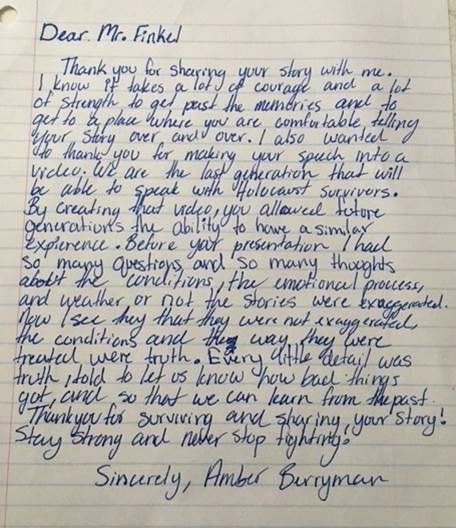 Dear Mr. Finkel
Thank you for sharing your story with me.
I know it takes a lot of courage and a lot
of strength to get past the memories and to
get to a place where you are comfortable telling
your story over and over. I also wanted
to thank you for making your speech into a
video. We are the last generation that will
be able to speak with Holocaust survivors.
By creating that video, you allowed future
generations the ability to have a similar
expierence. Before your presentation I had
so many questions and so many thoughts
about the conditions, the emotional process,
and weather or not the stories were exaggerated.
Now I see they that they were not exaggerated,
the conditions and the way they were
treated were truth. Every little detail was
truth, told to let us know how bad things
got, and so that we can learn from the past.
Thank you for surviving and sharing your story!
Stay strong and never stop fighting!
Sincerely, Amber Berryman